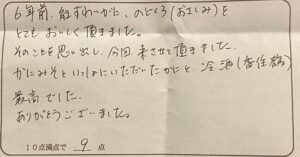 6年前、紅ずわいがに、のどぐろ(おさしみ)を
とてもおいしく頂きました。
そのことを思い出し、今回、来させて頂きました。
かにみそといっしょにいただいたかにと、冷酒(香住鶴)
最高でした。
ありがとうございました。
10点満点で 9 点